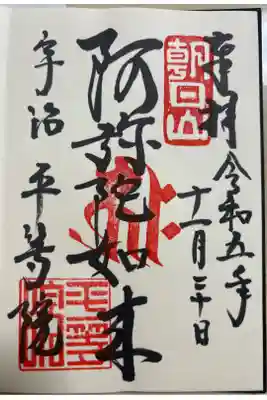 奉拝 令和五年
十一月三十日
朝日山
阿弥陀如来
宇治 平等院
平等院